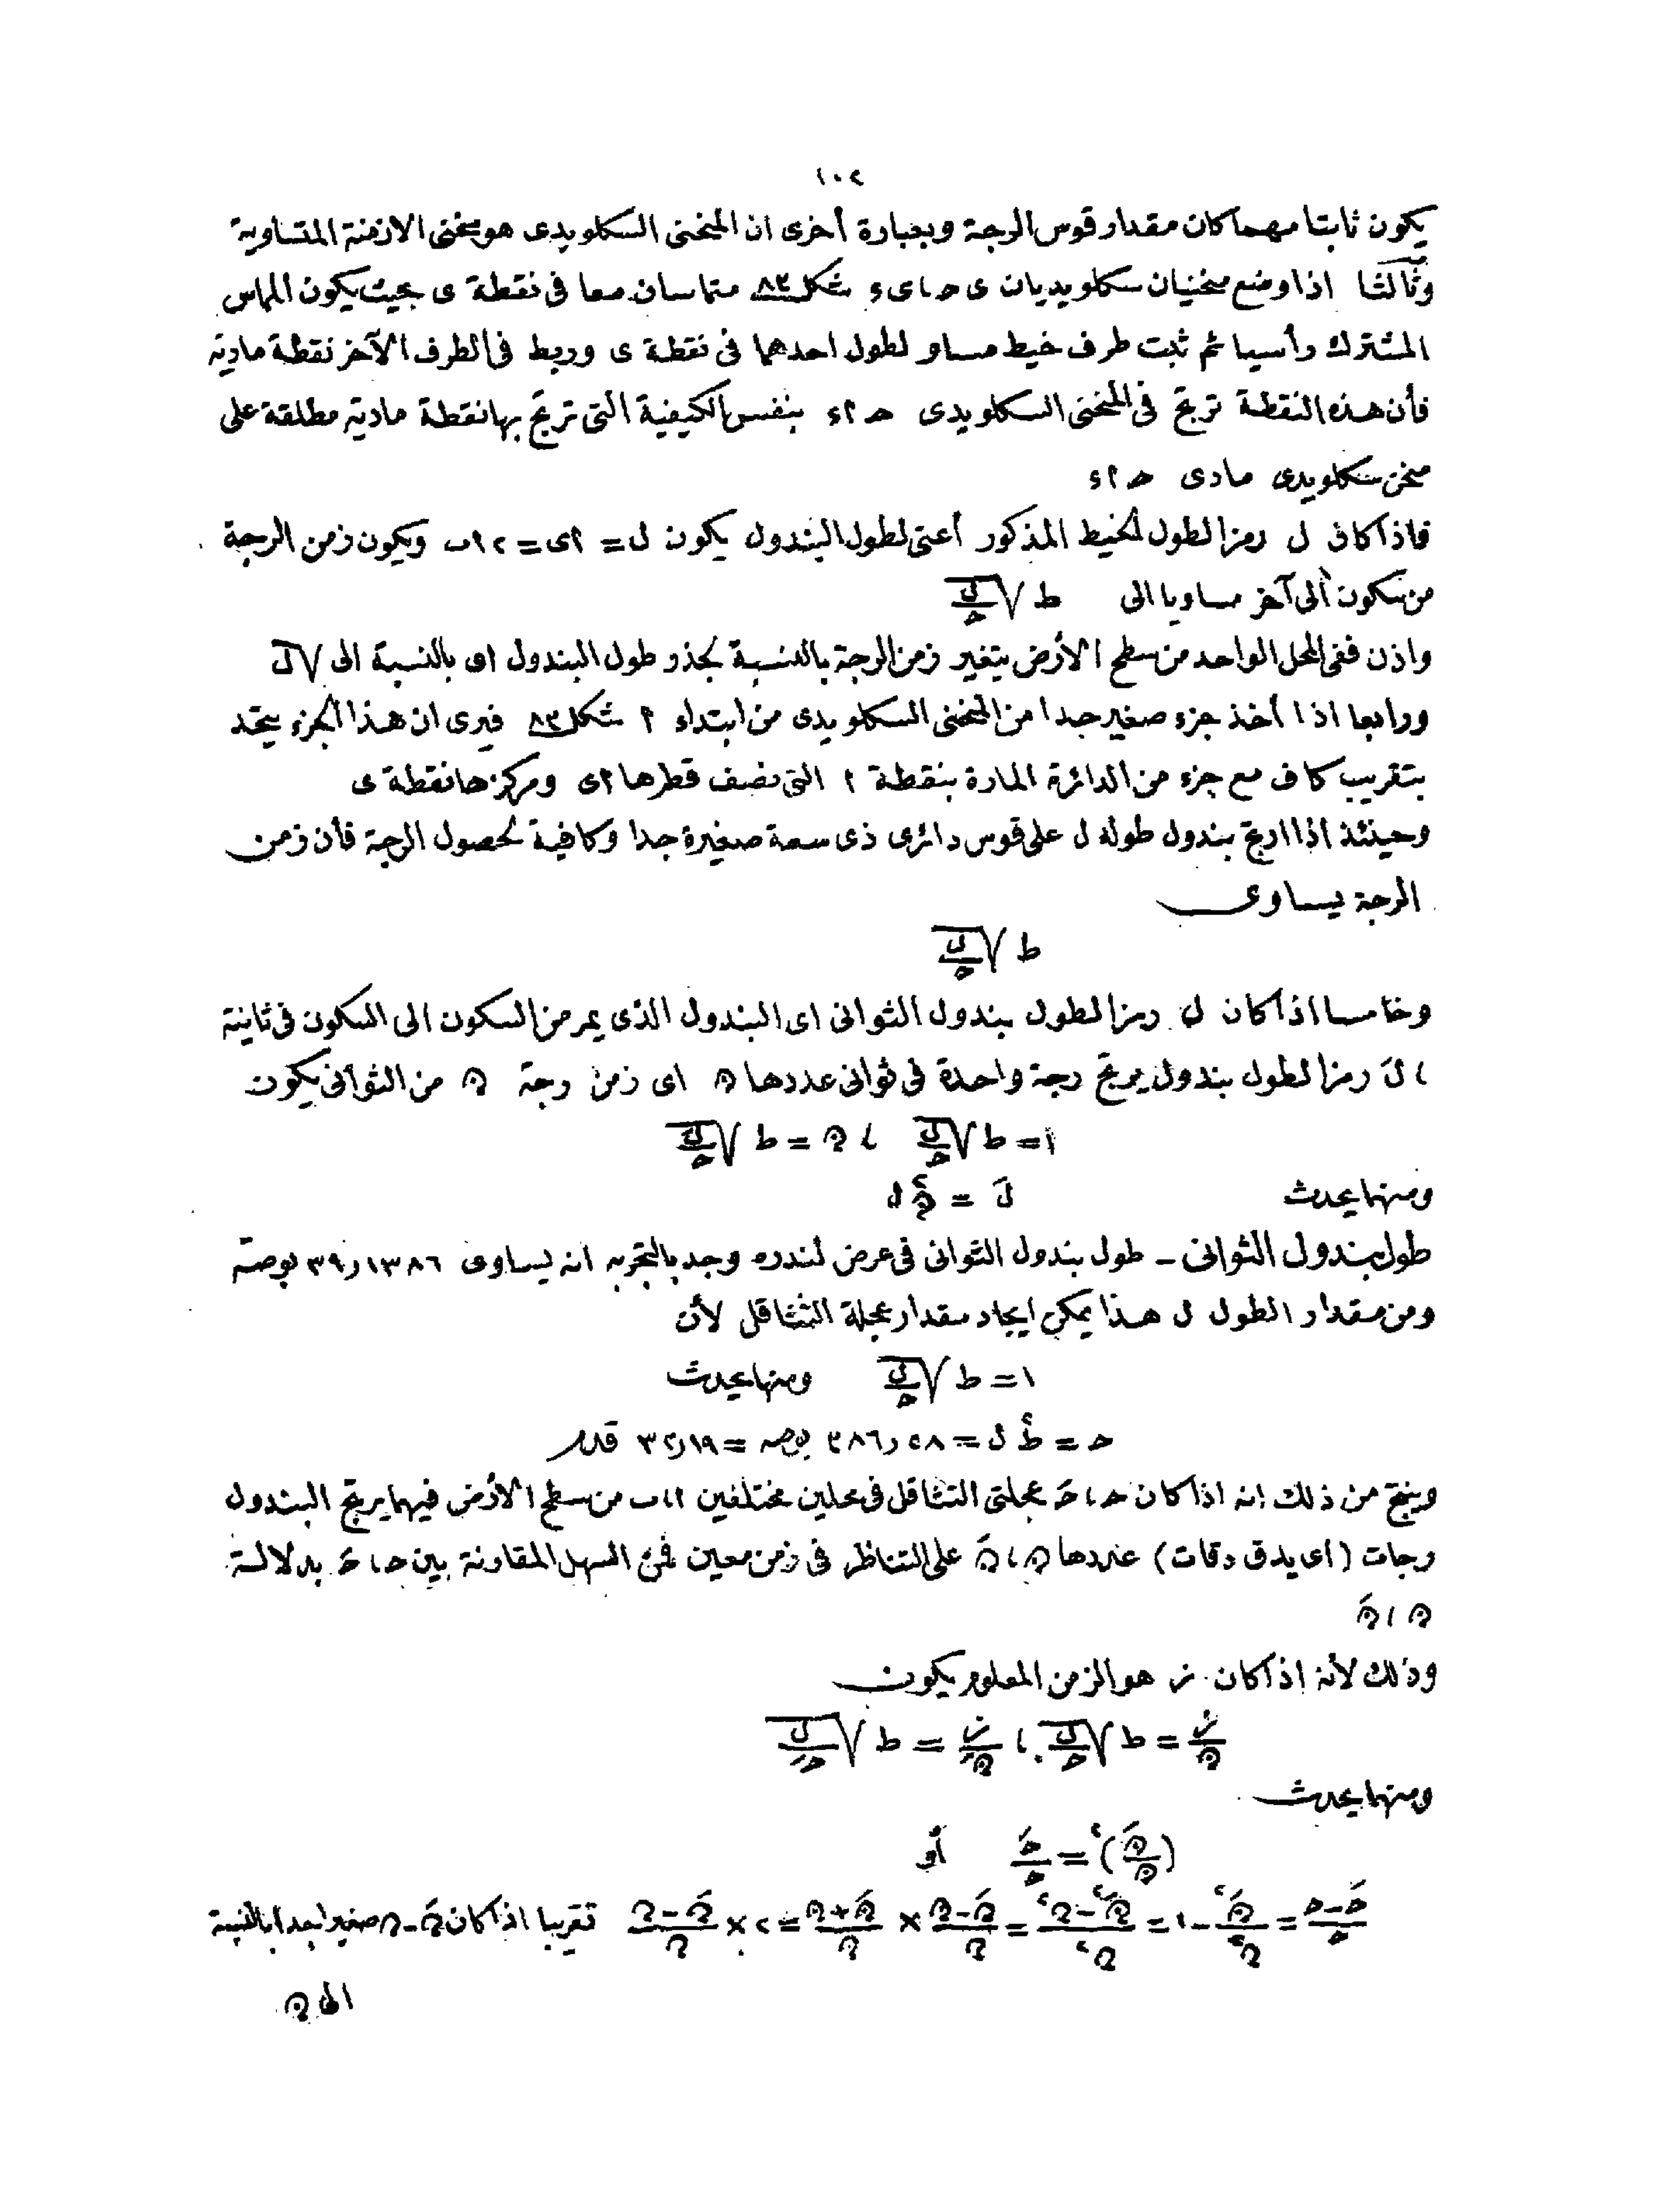 ١٠٢
يكون ثابتا مهما كان مقدار قوس الرجة وبعبارة أخرى ان المنحنى السكلويدى هو منحنى الازمنة المتساوية
وثالثا اذا وضع منحنيان سكلويديان ى حـ ، ى ء شكل ٨٣ متماسان معا فى نقطة ى بحيث يكون المماس
المشترك رأسيا ثم ثبت طرف خيط مساو لطول احدهما فى نقطة ى وربط فى الطرف الآخر نقطة مادية
فأن هذه النقطة ترتج فى المنحنى السكلويدى حـ ا ء بنفس الكيفية التى ترتج بها نقطة مادية مطلقة على
منحن سكلويدى مادى حـ ا ء
فاذا كان ل رمزا لطول الخيط المذكور أعنى لطول البندول يكون ل = اى = ٢ اب ويكون زمن الرجة
من سكون الى آخر مساويا الى ط √(ل/حـ)
واذن ففى المحل الواحد من سطح الأرض يتغير زمن الرجة بالنسبة لجذر طول البندول اى بالنسبة الى √ل
ورابعا اذا أخذ جزء صغير جدا من المنحنى السكلويدى من ابتداء ا شكل ٨٣ فيرى ان هذا الجزء يتحد
بتقريب كاف مع جزء من الدائرة المارة بنقطة ا التى نصف قطرها اى ومركزها نقطة ى
وحينئذ اذا ارتج بندول طوله ل على قوس دائرى ذى سعة صغيرة جدا وكافية لحصول الرجة فأن زمن
الرجة يساوى
ط √(ل/حـ)
وخامسا اذا كان ل رمزا لطول بندول الثوانى اى البندول الذى يمر من السكون الى السكون فى ثانية
، لَ رمزا لطول بندول يرتج رجة واحدة فى ثوانى عددها ن اى زمن رجة ن من الثوانى يكون
١ = ط √(ل/حـ) ، ن = ط √(لَ/حـ)
ومنها يحدث لَ = ن٢ ل
طول بندول الثوانى - طول بندول الثوانى فى عرض لندره وجد بالتجربه انه يساوى ٣٩٫١٣٨٦ بوصة
ومن مقدار الطول ل هذا يمكن ايجاد مقدار عجلة التثاقل لأن
١ = ط √(ل/حـ) ومنها يحدث
حـ = ط٢ ل = ٣٨٦٫٥٨ بوصه = ٣٢٫١٩ قدم
وينتج من ذلك انه اذا كان حـ ، حـَ عجلتى التثاقل فى محلين مختلفين ا ، ب من سطح الأرض فيهما يرتج البندول
رجات (اى يدق دقات) عددها ن ، نَ على التناظر فى زمن معين فمن السهل المقارنة بين حـ ، حـَ بدلالة
ن ، نَ
وذلك لأنه اذا كان ز هو الزمن المعلوم يكون
ز/ن = ط √(ل/حـ) ، ز/نَ = ط √(ل/حـَ)
ومنها يحدث
(نَ/ن)٢ = حـَ/حـ أو
(حـَ-حـ)/حـ = نَ٢/ن٢ - ١ = (نَ٢-ن٢)/ن٢ = (نَ-ن)/ن × (نَ+ن)/ن = ٢ × (نَ-ن)/ن تقريبا اذا كان نَ-ن صغيرا جدا بالنسبة
الى ن